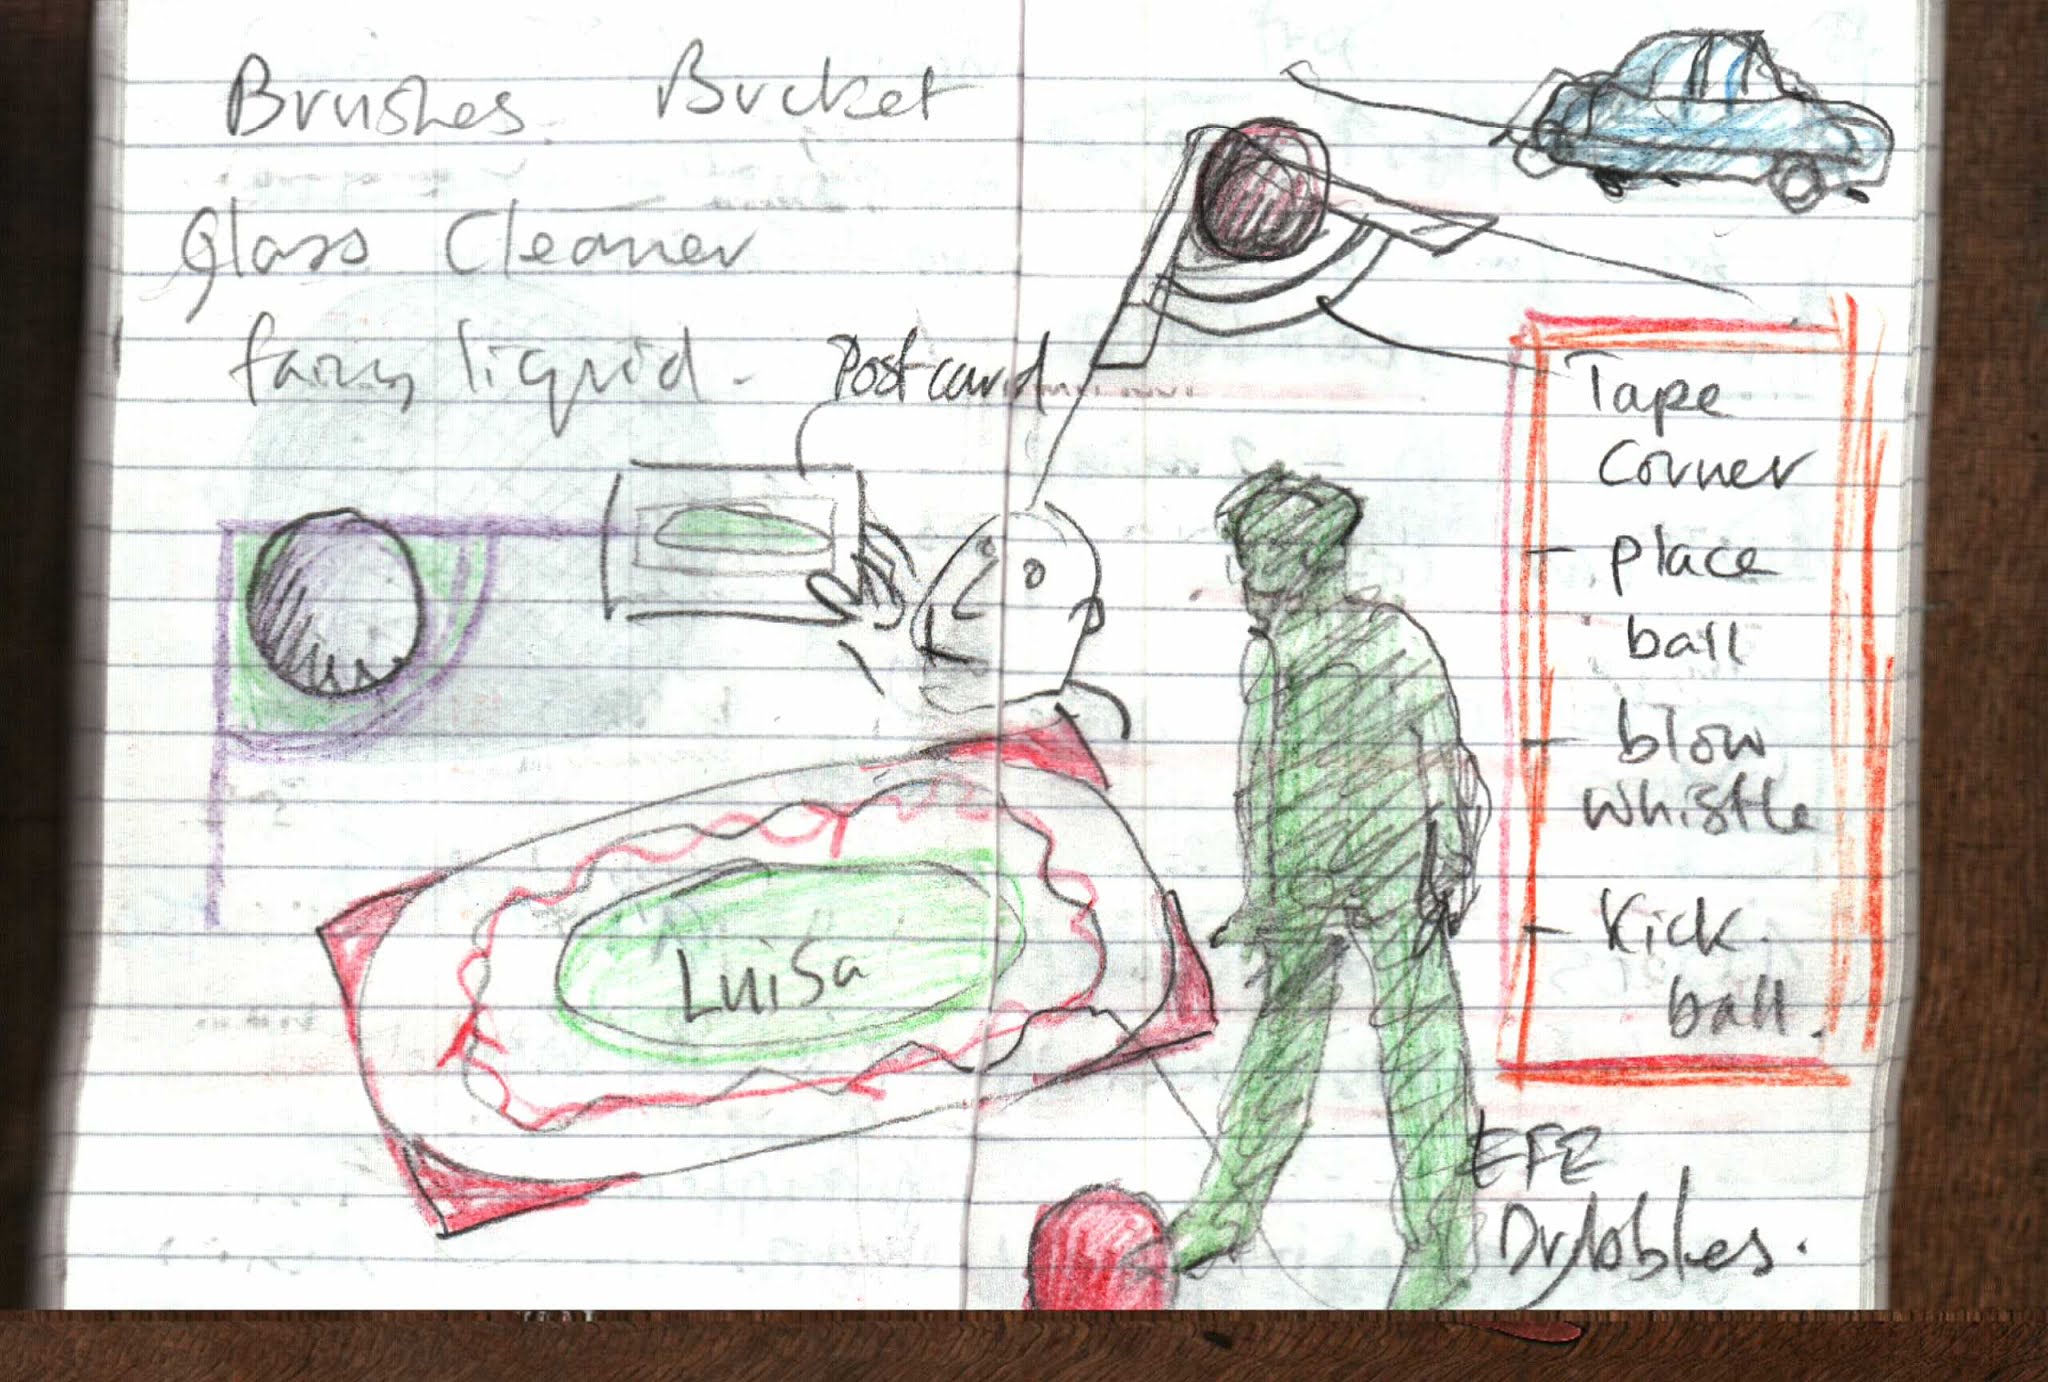 Brushes Bucket
Glass Cleaner
fairy liquid.
Postcard
Luisa
Tape
Corner
- place
ball
- blow
whistle
- Kick
ball.
EFE
Drybbles.